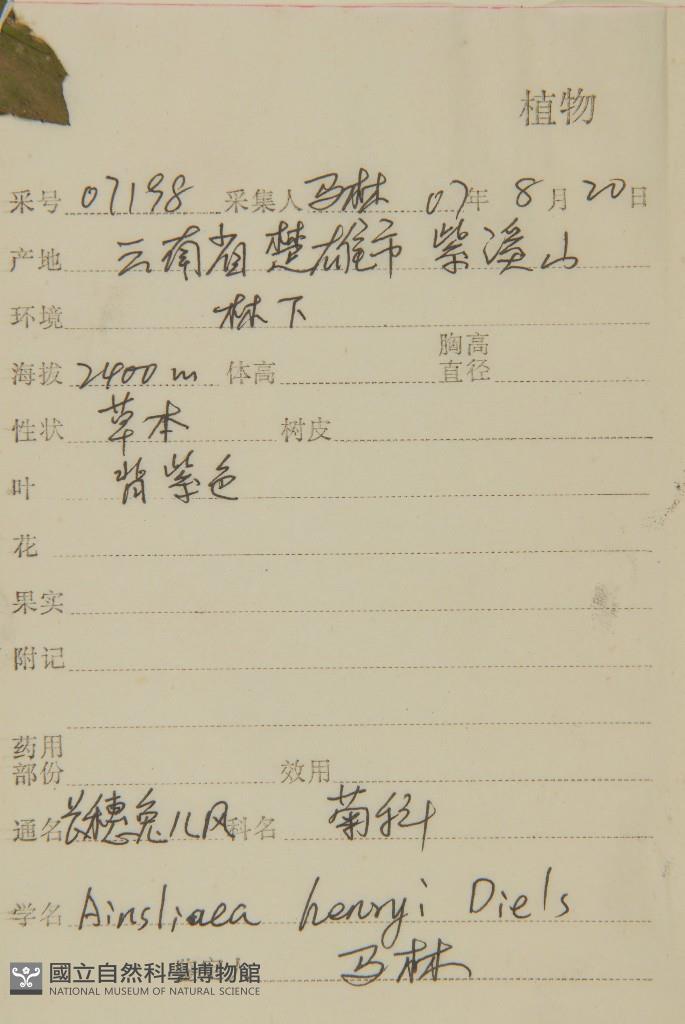 植物
采号 07198 采集人 马林 07年 8月 20日
产地 云南省楚雄市 紫溪山
环境 林下
海拔 2400 m 体高 胸高直径
性状 草本 树皮
叶 背紫色
花
果实
附记
药用部份 效用
通名 长穗兔儿风 科名 菊科
学名 Ainsliaea henryi Diels
马林
國立自然科學博物館
NATIONAL MUSEUM OF NATURAL SCIENCE